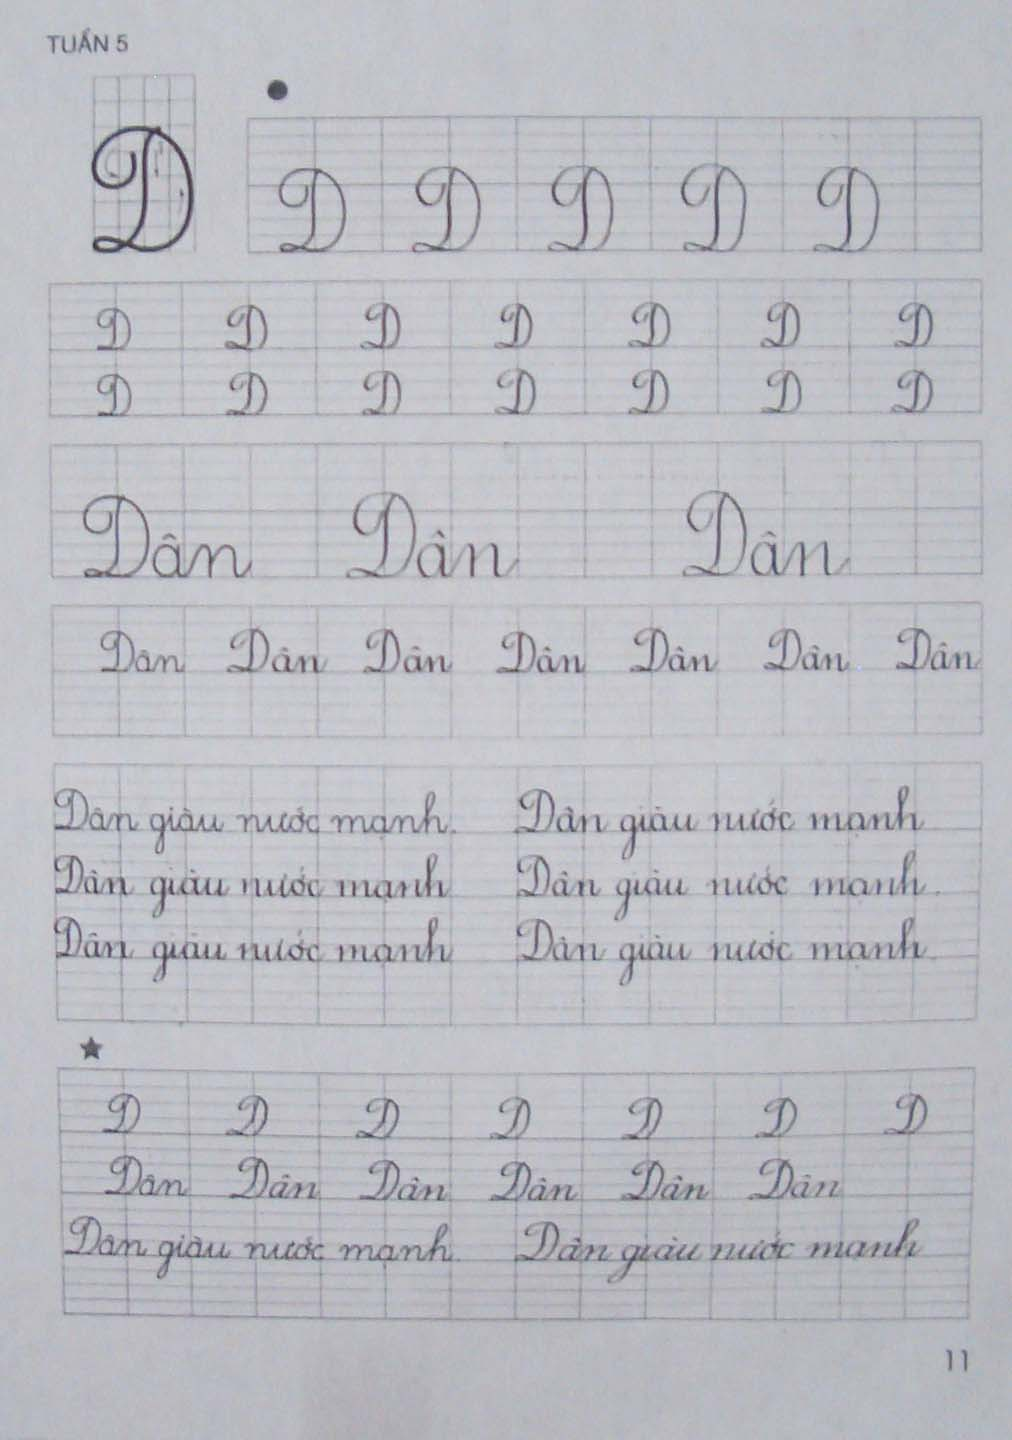 TUẦN 5
D
D D D D D
D D D D D D D
D D D D D D D
Dân Dân Dân
Dân Dân Dân Dân Dân Dân Dân
Dân giàu nước mạnh. Dân giàu nước mạnh
Dân giàu nước mạnh Dân giàu nước mạnh.
Dân giàu nước mạnh Dân giàu nước mạnh.
D D D D D D D
Dân Dân Dân Dân Dân Dân
Dân giàu nước mạnh. Dân giàu nước mạnh
11